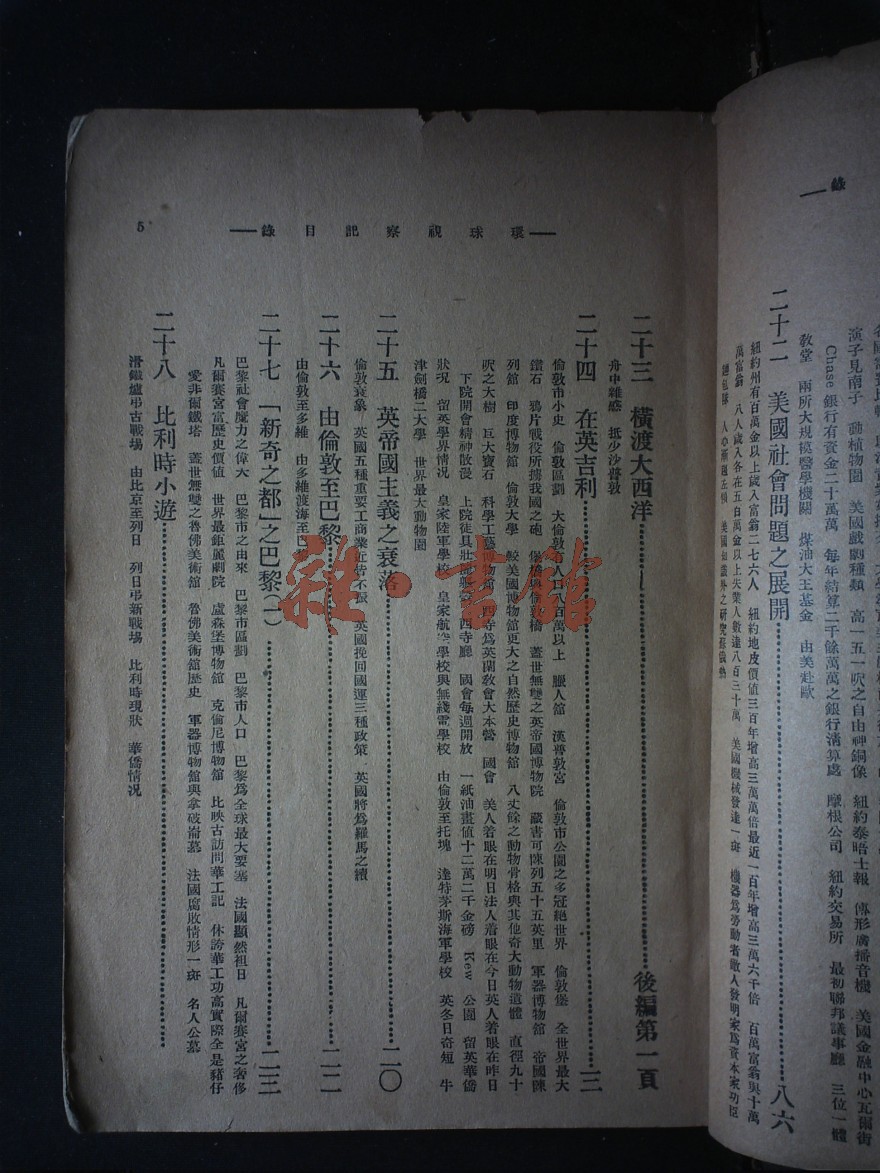 錄
Chase 銀行有資金二十萬萬 每年結算二千餘萬萬之銀行清算處 摩根公司 紐約交易所 最初聯邦議事廳 三位一體
教堂 兩所大規模醫學機關 煤油大王基金 由美赴歐
二十二 美國社會問題之展開 八六
紐約州有百萬金以上歲入富翁二七六人 紐約地皮價值三百年增高三萬萬倍最近一百年增高三萬六千倍 百萬富翁與十萬
萬富翁 八人歲入各在五百萬金以上失業人數達八百三十萬 美國機械發達一斑 機器爲勞動者敵人發明家爲資本家功臣
環球視察記目錄
5
二十三 橫渡大西洋 後編第一頁
舟中雜感 抵少沙普敦
二十四 在英吉利 三
倫敦市小史 倫敦區劃 大倫敦 人口 百萬以上 臘人舘 漢普敦宮 倫敦市公園之多冠絕世界 倫敦堡 全世界最大
鑽石 鴉片戰役所擄我國之砲 堡橋與倫敦橋 蓋世無雙之英帝國博物院 藏書可陳列五十五英里 軍器博物館 帝國陳
列館 印度博物館 倫敦大學 較美國博物館更大之自然歷史博物館 八丈餘之動物骨格與其他奇大動物遺體 直徑九十
呎之大樹 巨大寶石 科學工藝博物館 西寺爲英蘭敎會大本營 國會 美人着眼在明日法人着眼在今日英人着眼在昨日
下院開會精神散漫 上院徒具壯 西寺廳 國會每週開放 一紙油畫值十二萬二千金磅 Kew 公園 留英華僑
狀况 留英學界情况 皇家陸軍學校 皇家航空學校與無綫電學校 由倫敦至托塊 達特茅斯海軍學校 英冬日奇短 牛
津劍橋二大學 世界最大動物園
二十五 英帝國主義之衰落 二〇
倫敦衰象 英國五種重要工商業近皆不振 英國挽回國運三種政策 英國將爲羅馬之續
二十六 由倫敦至巴黎 二二
由倫敦至多維 由多維渡海至巴
二十七 「新奇之都」之巴黎(一) 二三
巴黎社會魔力之偉大 巴黎市之由來 巴黎市區劃 巴黎市人口 巴黎爲全球最大要塞 法國顯然祖日 凡爾賽宮之奢侈
凡爾賽宮富歷史價值 世界最鉅麗劇院 盧森堡博物館 克倫尼博物館 比映古訪問華工記 休誇華工功高實際全是豬仔
愛非爾鐵塔 蓋世無雙之魯佛美術館 魯佛美術館歷史 軍器博物館與拿破崙墓 法國腐敗情形一斑 名人公墓
二十八 比利時小遊
滑鐵盧弔古戰場 由比京至列日 列日弔新戰場 比利時現狀 華僑情况
雜·書館